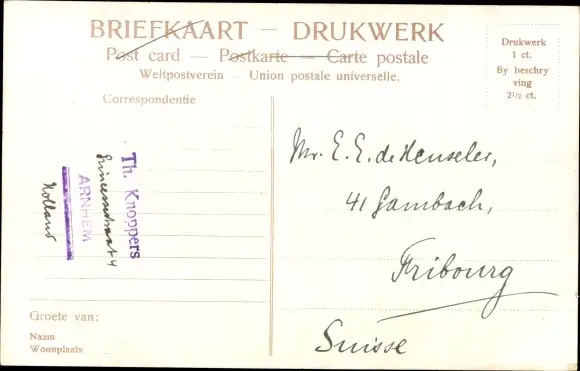 BRIEFKAART — DRUKWERK
Post card — Postkarte — Carte postale
Weltpostverein – Union postale universelle.
Drukwerk
1 ct.
By beschry
ving
2½ ct.
Correspondentie
Th. Knoppers
Prinsessestraat 4
ARNHEM
Holland
Mr. E. E. de Heuseler,
41 Gambach,
Fribourg
Suisse
Groete van:
Naam
Woonplaats